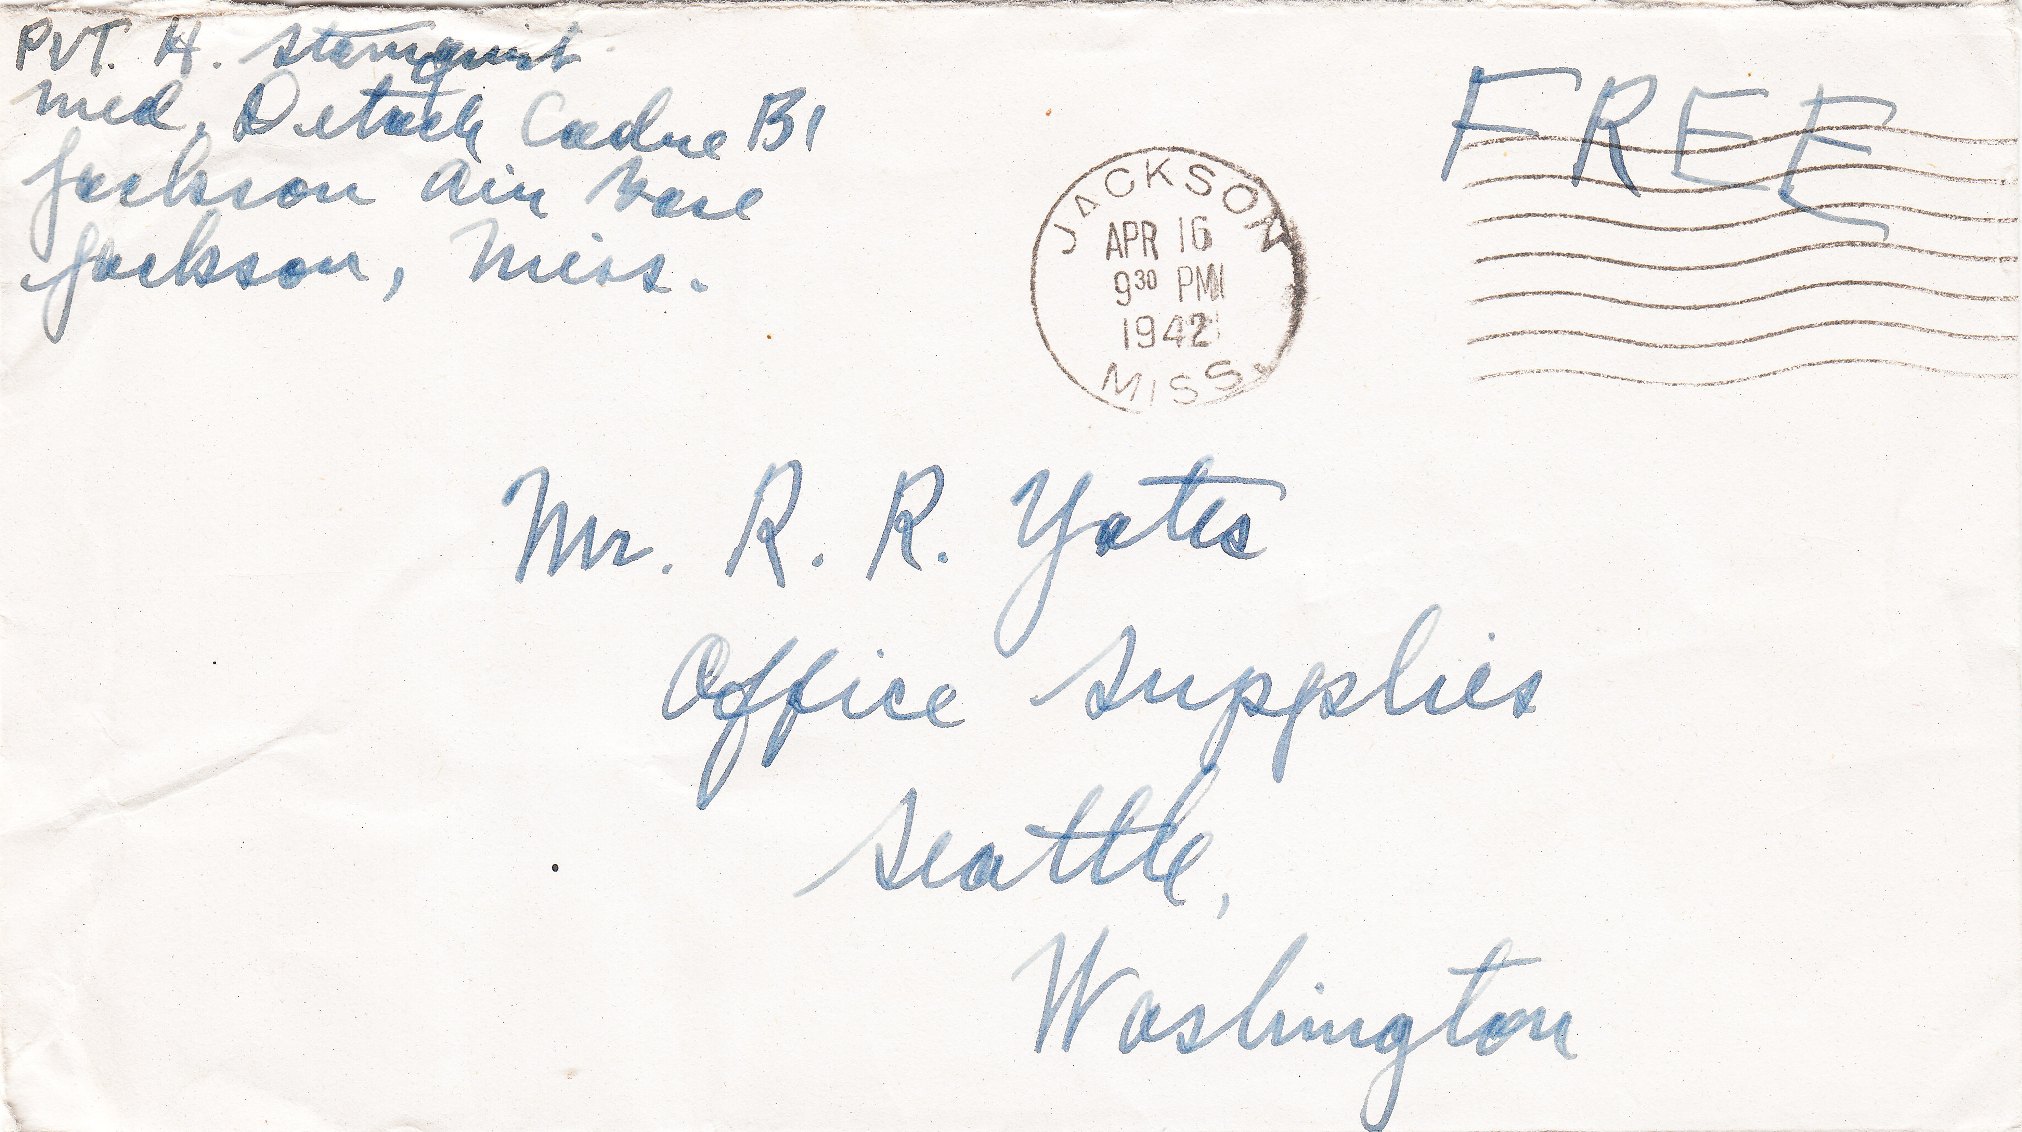 PVT. H. Sternquist
Med. Detach Cadre B1
Jackson Air Base
Jackson, Miss.
FREE
JACKSON
APR 16
9 30 PM
1942
MISS.
Mr. R. R. Yates
Office Supplies
Seattle,
Washington